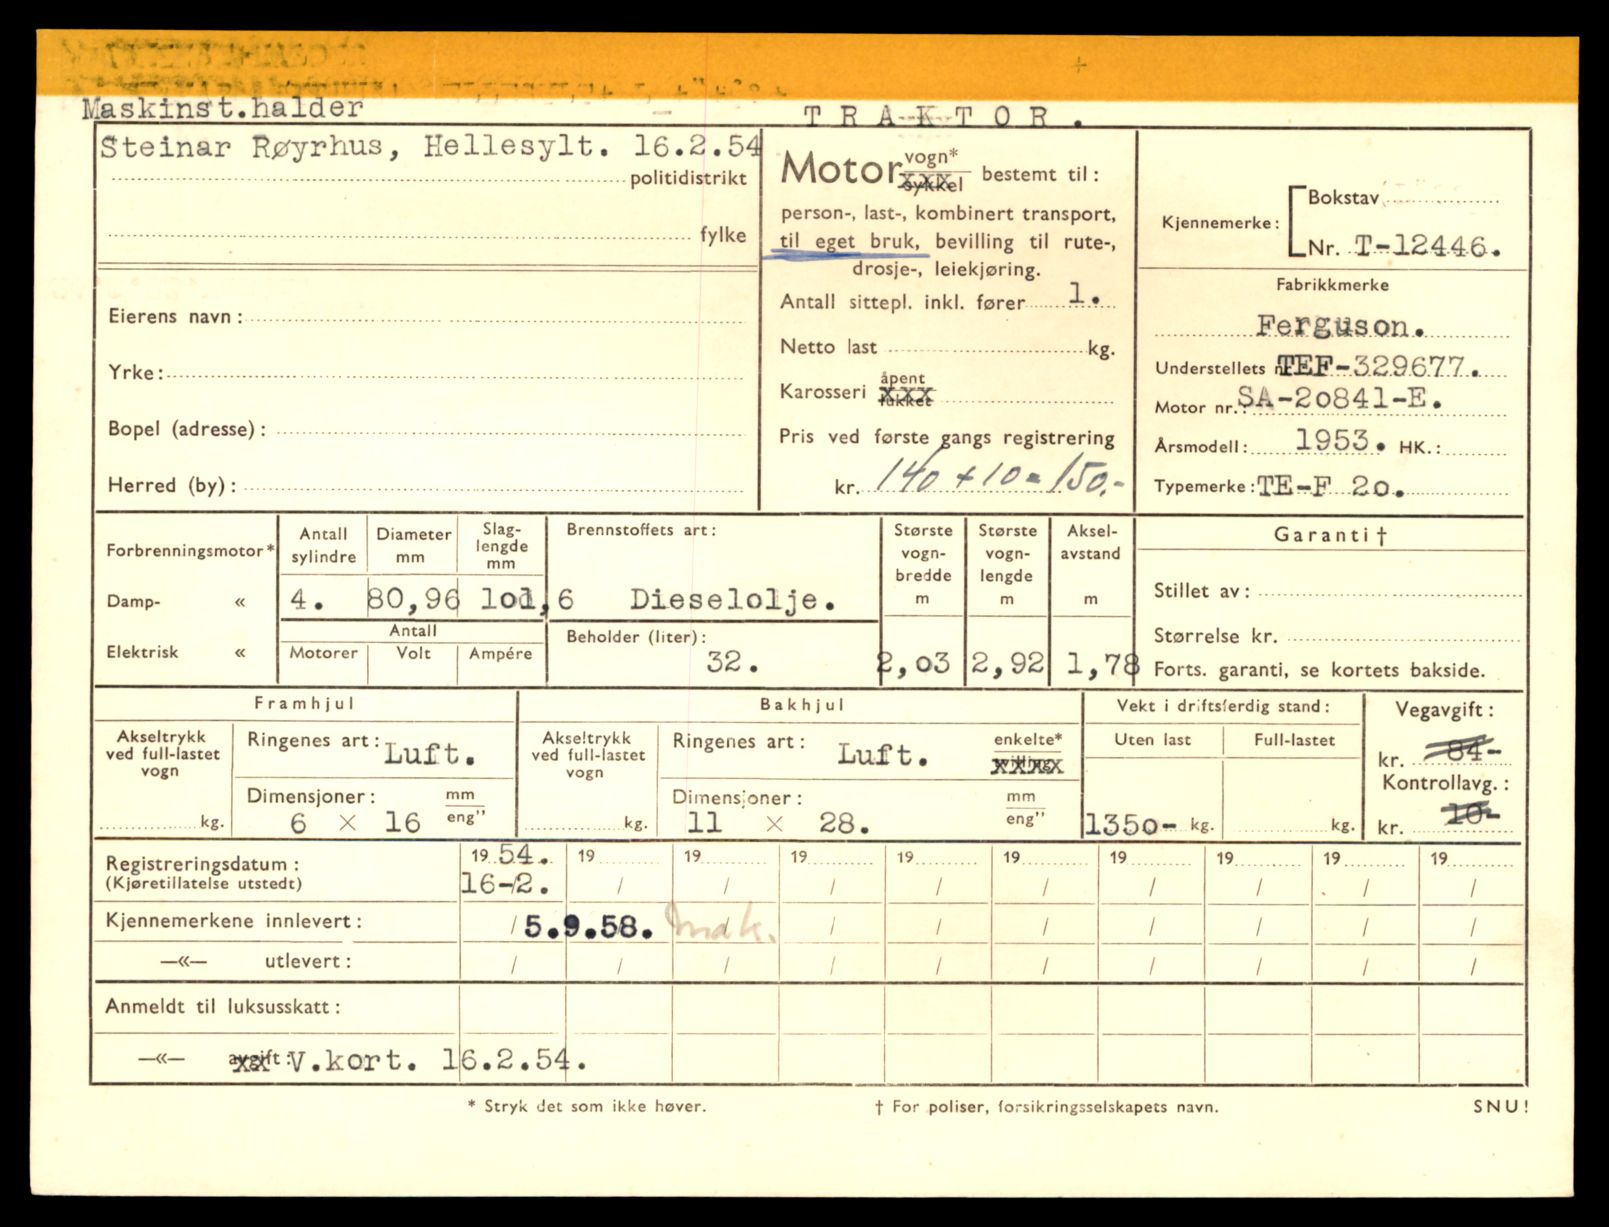 Maskinst.halder
TRAKTOR.
Steinar Røyrhus, Hellesylt. 16.2.54
politidistrikt
fylke
Eierens navn:
Yrke:
Bopel (adresse):
Herred (by):
Motor vogn* sykkel bestemt til:
person-, last-, kombinert transport,
til eget bruk, bevilling til rute-,
drosje-, leiekjøring.
Antall sittepl. inkl. fører 1.
Netto last kg.
Karosseri åpent lukket
Pris ved første gangs registrering
kr. 140 + 10 = 150.-
Kjennemerke: Bokstav
Nr. T-12446.
Fabrikkmerke
Ferguson.
Understellets TEF-329677.
Motor nr.: SA-20841-E.
Årsmodell: 1953. HK.:
Typemerke: TE-F 20.
Forbrenningsmotor*
Damp- «
Elektrisk «
Antall sylindre
Diameter mm
Slag-lengde mm
4. 80,96 101,6
Antall
Motorer Volt Ampére
Brennstoffets art:
Dieselolje.
Beholder (liter):
32.
Største vogn-bredde m
Største vogn-lengde m
Aksel-avstand m
2,03 2,92 1,78
Garanti †
Stillet av:
Størrelse kr.
Forts. garanti, se kortets bakside.
Framhjul
Akseltrykk ved full-lastet vogn
kg.
Ringenes art: Luft.
Dimensjoner: mm eng"
6 × 16
Bakhjul
Akseltrykk ved full-lastet vogn
kg.
Ringenes art: Luft. enkelte* tvilling
Dimensjoner: mm eng"
11 × 28.
Vekt i driftsferdig stand:
Uten last Full-lastet
1350- kg. kg.
Vegavgift:
kr. 84-
Kontrollavg.:
kr. 10-
Registreringsdatum: 19 54. 19 19 19 19 19 19 19 19 19
(Kjøretillatelse utstedt) 16-/2. / / / / / / / / /
Kjennemerkene innlevert: / 5.9.58. / / / / / / / /
—«— utlevert: / / / / / / / / / /
Anmeldt til luksusskatt:
—«— avgift: V.kort. 16.2.54.
* Stryk det som ikke høver.
† For poliser, forsikringsselskapets navn.
SNU!